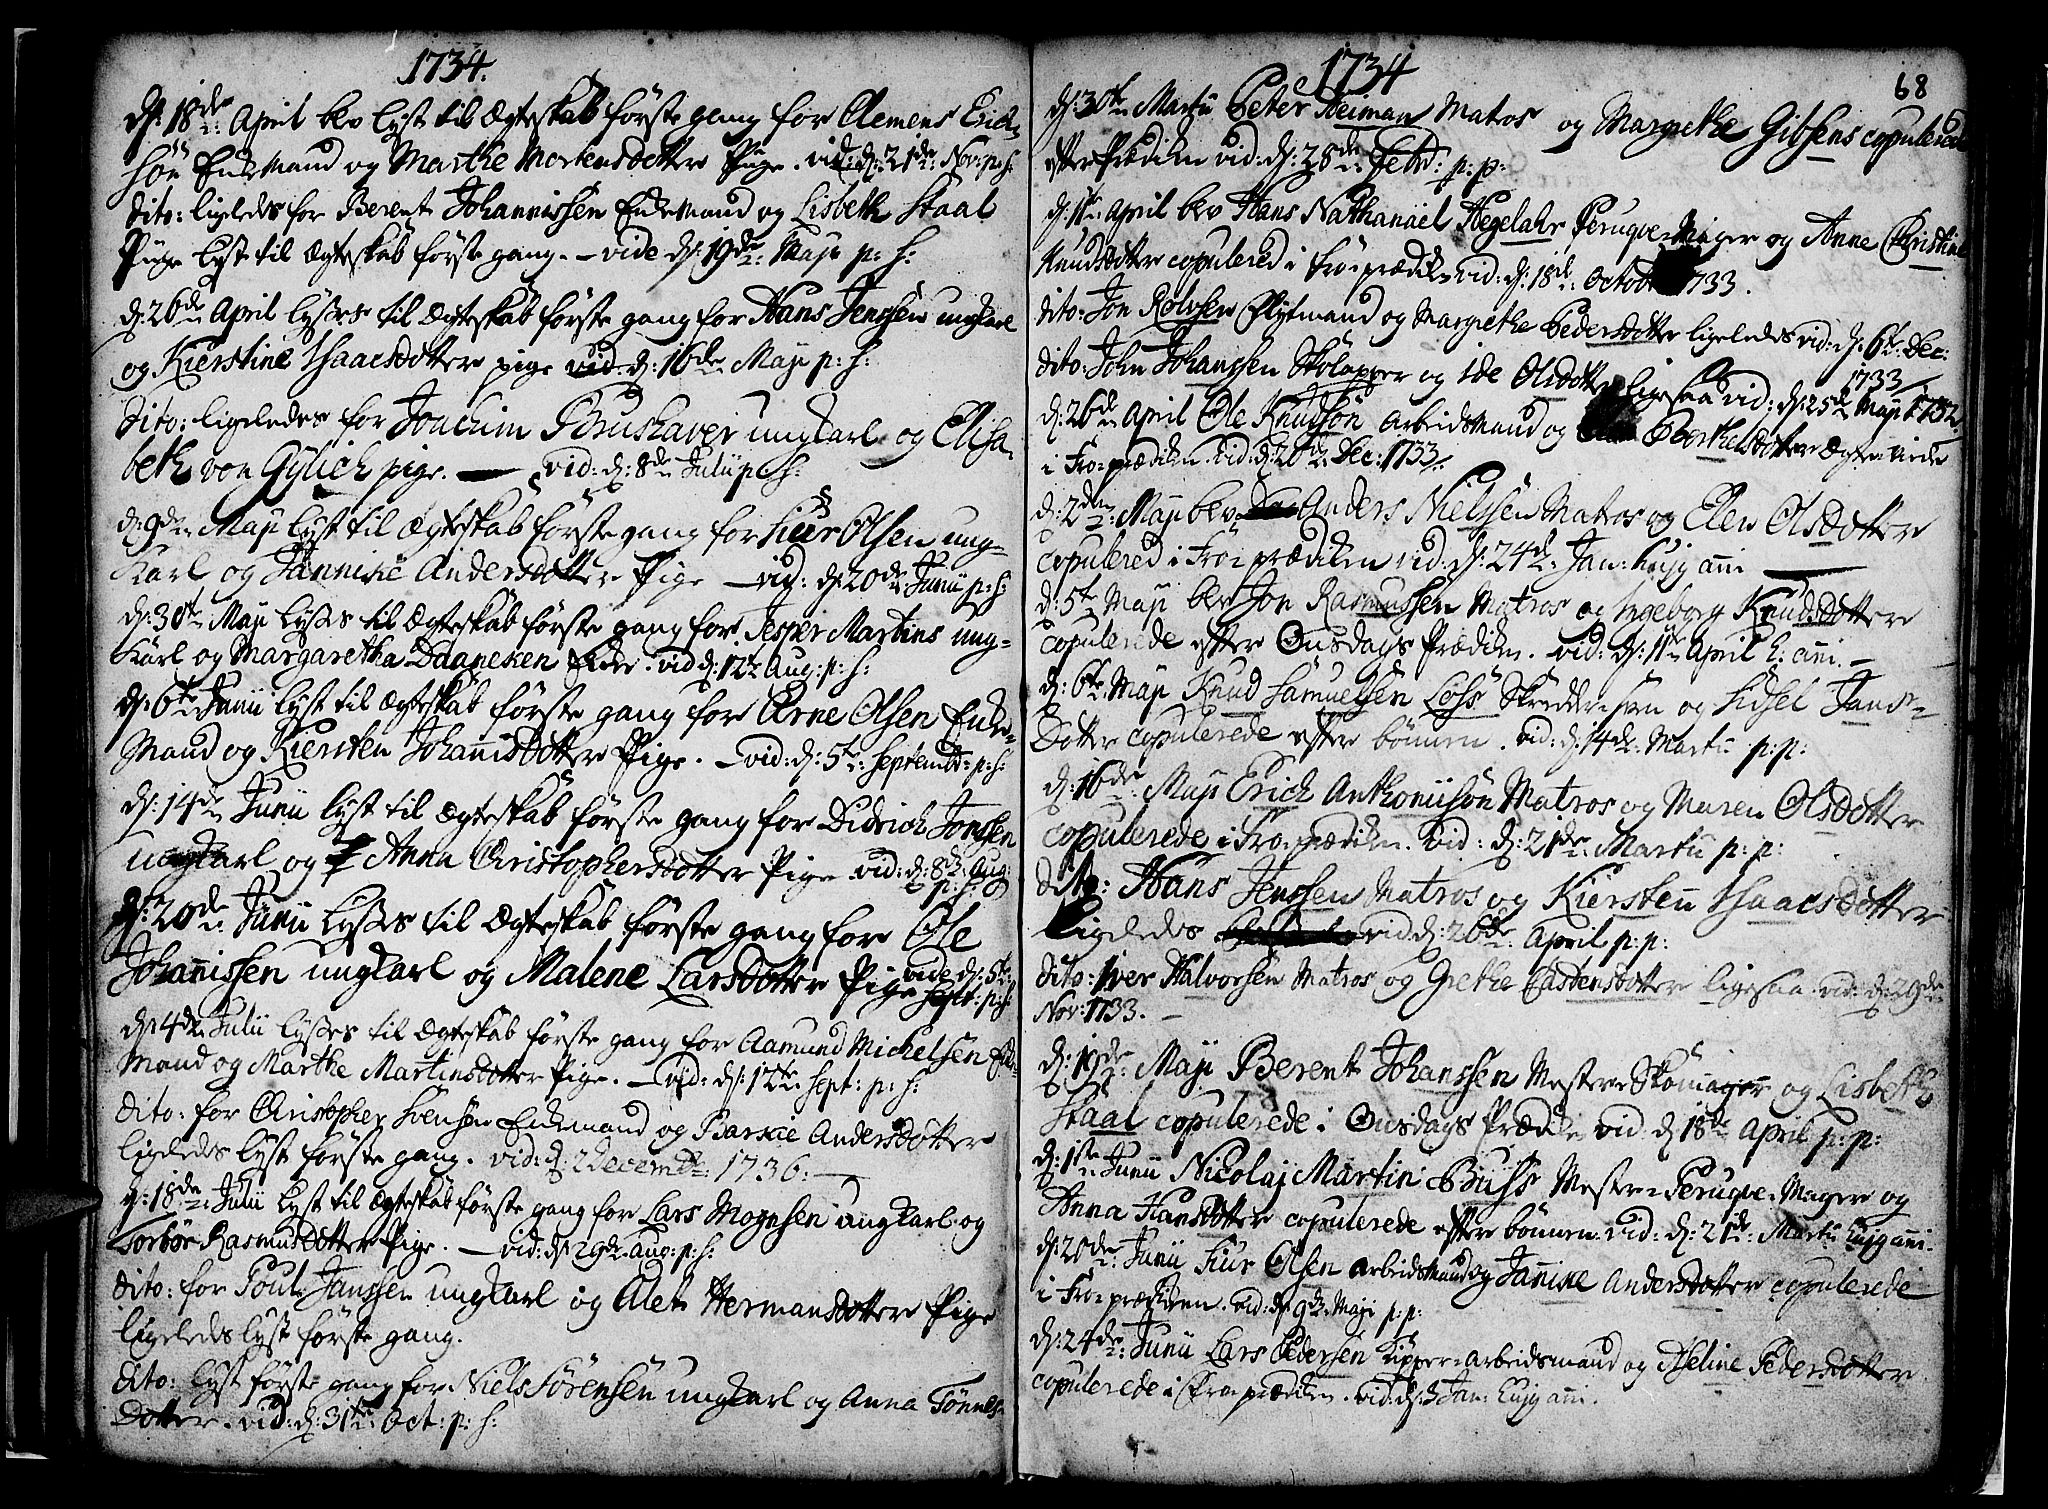 1734.
d: 18de April blv lyst til Ægteskab förste gang for Clemens Erich=
sön Enkemand og Marthe Mortensdotter Pige. vid: d: 21de Nov: p: h:
Dito: ligeledes for Berent Johannissen Enkemand og Lisbeth Staal
Pige lyst til Ægteskab förste gang. - vide d: 19de Maji p: h:
d: 26de April lyses til Ægteskab förste gang for Hans Jenssen ungkarl
og Kierstine Isaacsdotter pige vid: d: 16de Maji p: h:
Dito: ligeledes for Joachim Brushaver ungkarl og Elisa=
beth von Gylich pige. - vid: d: 8de Julii p: h:
d: 9de Maji lyst til Ægteskab förste gang for Siur Olsen ung=
Karl og Jannike Andersdotter Pige - vid: d: 20de Junii p: h:
d: 30te Maji lyses til Ægteskab förste gang for Jesper Martins ung=
Karl og Margaretha Daaneken Enke. vid d: 12te Aug: p: h:
d: 6te Junii lyst til Ægteskab förste gang for Arne Olsen Enke=
Mand og Kiersten Johannisdotter Pige. - vid: d: 5te Septembr: p: h:
d: 14de Junii lyst til Ægteskab förste gang for Didrich Jonssen
ungkarl og Anna Christophersdotter Pige vid: d: 8de Aug:
p: h:
d: 20de Junii lyses til Ægteskab förste gang for Ole
Johannissen ungkarl og Malene Larsdotter Pige vide d: 5te
Sept: p: h:
d: 4de Julii lyses til Ægteskab förste gang for Aamund Michelsen Enke=
Mand og Marthe Martinsdotter Pige. - vid: d: 12te Sept: p: h:
Dito: for Christopher Svensön Enkemand og Barskie Andersdotter
ligeledes lyst förste gang. vid: d: 2 Decembr: 1736. -
d: 18de Julii lyst til Ægteskab förste gang for Lars Mognsen ungkarl og
Torbör Rasmusdotter Pige. - vid: d: 29de Aug: p: h:
Dito: for Poul Janssen ungkarl og Alet Hermansdotter Pige
ligeledes lyst förste gang.
Dito: lyst förste gang for Niels Sörensen ungkarl og Anna Tönnes=
Dotter. vid: d: 31te Oct: p: h:
1734
68
d: 30te Martii Peter Neiman Matros og Margrethe Gibsens copulerede
efter Prædiken vid: d: 28de Febr: p: p:
d: 11te April blv Hans Nathanael Hegelahr Peruqve=Mager og Anne Christine
Knudsdotter copulered i Froeprædiken vid: d: 18de Octob 1733.
Dito: Jon Rolvsen Flytmand og Margrethe Pedersdotter ligeledes vid: d: 6te Dec:
1733
Dito: John Johanssen Skolapper og Ide Olsdotter ligesaa vid: d: 25de Maji 1732
d: 26de April Ole Knudsön Arbeidsmand og Barthelsdotter Ægte viede
i Froeprædiken. vid: d: 20de Dec: 1733.
d: 2den Maji blv Anders Nielsen Matros og Elen Olsdotter
copulered i Froeprædiken vid: d: 24de Jan: hujg anni
d: 5te Maji blv Jon Rasmussen Matros og Ingeborg Knudsdotter
copulerede efter Onsdags Prædiken. vid: d: 11te April h: anni. -
d: 6te Maji Knud Samuelsen Loss Skredder=sven og Sidsel Jans=
Dotter copulerede efter bönnen. vid: d: 14de Martii p: p:
d: 16de Maji Erich Anthoniisön Matros og Maren Olsdotter
copulerede i Froeprædiken. vid: d: 21de Martii p: p:
dito: Hans Jenssen Matros og Kiersten Isaacsdotter
Ligeledes vid d: 26de April p: p:
Dito: Iver Halvorsen Matros og Grethe Castensdotter ligesaa vid: d: 29de
Nov: 1733. -
d: 19de Maji Berent Johanssen Mester Skomager og Lisbeth
Staal copulerede i Onsdags Prædiken vid d 18de April p: p:
d: 1ste Junii Nicolaj Martini Buss Mester=Peruqve=Mager og
Anna Hansdotter copulerede efter bönnen. vid: d: 21de Martii hujg anni.
d: 20de Junii Siur Olsen Arbeidsmand og Jannike Andersdotter copulerede
i Froeprædiken. vid: d: 9de Maji p: p:
d: 24de Junii Lars Pedersen Kipper=Arbeidsmand og Aseline Pedersdotter
copulerede i Froeprædiken. vid: d: 3 Jan: hujg anni.